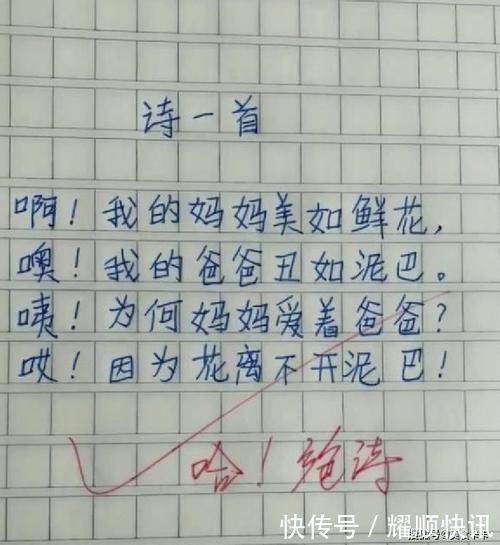 诗一首
啊！我的妈妈美如鲜花，
噢！我的爸爸丑如泥巴。
咦！为何妈妈爱着爸爸？
哎！因为花离不开泥巴！
哈！绝诗
快传号／耀顺快讯